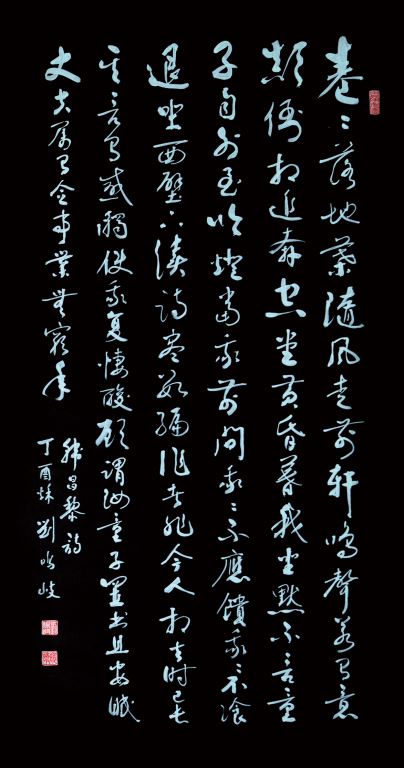 卷〻落地葉隨風走前軒鳴聲若有意
顛倒相追奔空堂黃昏暮我坐默不言童
子自外至吹燈當我前問我〻不應饋我〻不飡
退坐西壁下讀詩盡數編作者非今人相去時已千
其言有感觸使我复悽酸顧謂汝童子置书且安眠
丈夫屬有念事業無窮年
韓昌黎詩
丁酉秌劉岐